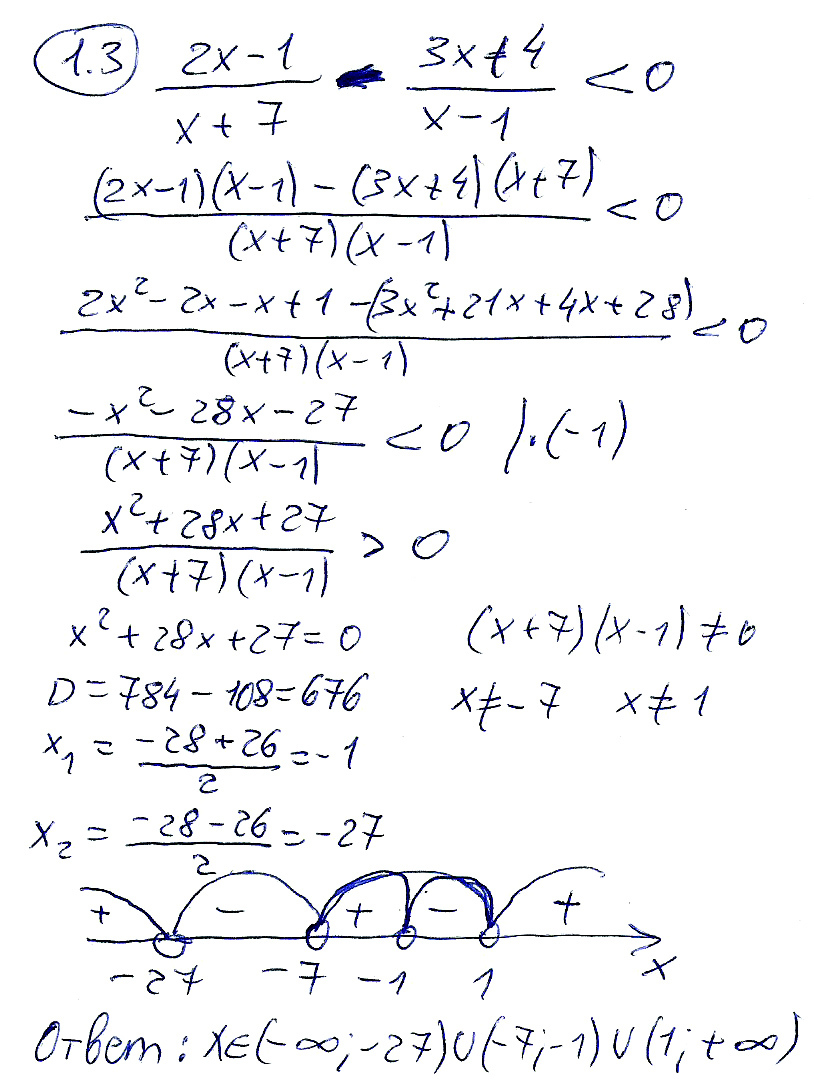 1.3 (2x-1)/(x+7) - (3x+4)/(x-1) < 0
((2x-1)(x-1) - (3x+4)(x+7))/((x+7)(x-1)) < 0
(2x²-2x-x+1-(3x²+21x+4x+28))/((x+7)(x-1)) < 0
(-x²-28x-27)/((x+7)(x-1)) < 0 |·(-1)
(x²+28x+27)/((x+7)(x-1)) > 0
x²+28x+27=0 (x+7)(x-1)≠0
D=784-108=676 x≠-7 x≠1
x₁ = (-28+26)/2 = -1
x₂ = (-28-26)/2 = -27
+ - + - +
-27 -7 -1 1 x
Ответ: x∈(-∞;-27)∪(-7;-1)∪(1;+∞)